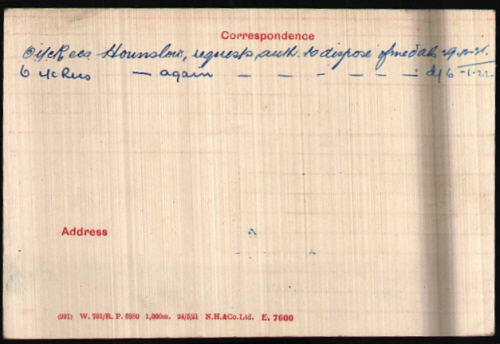 Correspondence
O i/c Recs Hounslow, requests auth. to dispose of medals 29.12.21.
O i/c Recs — again — — — — — : d/ 6-1-22
Address
(991) W. 791/R. P. 6950 1,000m. 24/5/21 N.H.&Co.Ltd. E. 7600